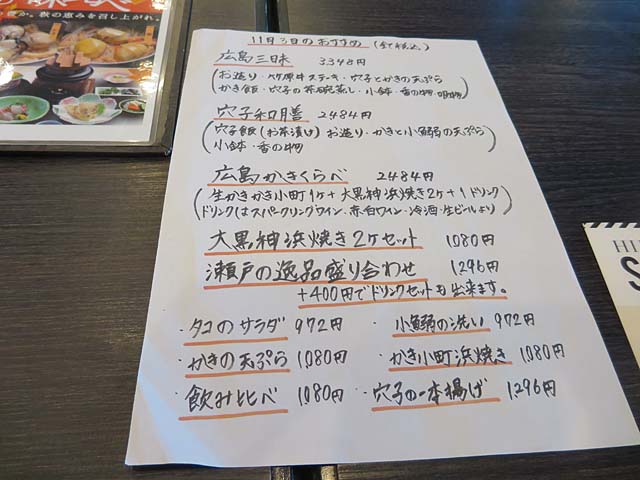 が、秋の恵みを召し上がれ。
11月3日のおすすめ (全て税込)
広島三昧 3348円
(お造り・ステーキ・穴子とかきの天ぷら
かき飯・穴子の茶碗蒸し・小鉢・香の物
穴子和膳 2484円
(穴子飯(お茶漬け) お造り・かきと小鰯の天ぷら
小鉢・香の物)
広島かきくらべ 2484円
(生かき かき小町1ケ + 大黒神浜焼き2ケ + 1ドリンク
ドリンクはスパークリングワイン・赤・白ワイン・冷酒・生ビールより)
大黒神浜焼き2ケセット 1,080円
瀬戸の逸品盛り合わせ 1,296円
+400円でドリンクセットも出来ます。
・タコのサラダ 972円
・小鰯の洗い 972円
・かきの天ぷら 1,080円
・かき小町浜焼き 1,080円
・飲み比べ 1,080円
・穴子の一本揚げ 1,296円